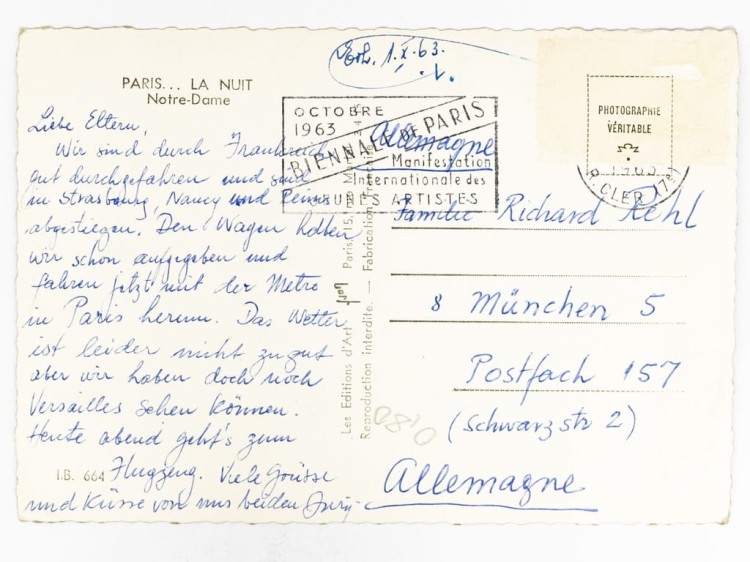 Erh. 1.X.63.
PARIS... LA NUIT
Notre-Dame
Liebe Eltern,
Wir sind durch Frankreich
gut durchgefahren und sind
in Strasbourg, Nancy und Reims
abgestiegen. Den Wagen haben
wir schon aufgegeben und
fahren jetzt mit der Metro
in Paris herum. Das Wetter
ist leider nicht zu gut
aber wir haben doch noch
Versailles sehen können.
Heute abend geht's zum
Flugzeug. Viele Grüsse
und Küsse von uns beiden
I.B. 664
OCTOBRE
1963
BIENNALE DE PARIS
Manifestation
Internationale des
JEUNES ARTISTES
PHOTOGRAPHIE
VÉRITABLE
R. CLER (7e)
Les Editions d'Art
Paris, 15, rue
Reproduction interdite. — Fabrication
Allemagne
Familie Richard Rehl
8 München 5
Postfach 157
(Schwarzstr 2)
Allemagne
0,80